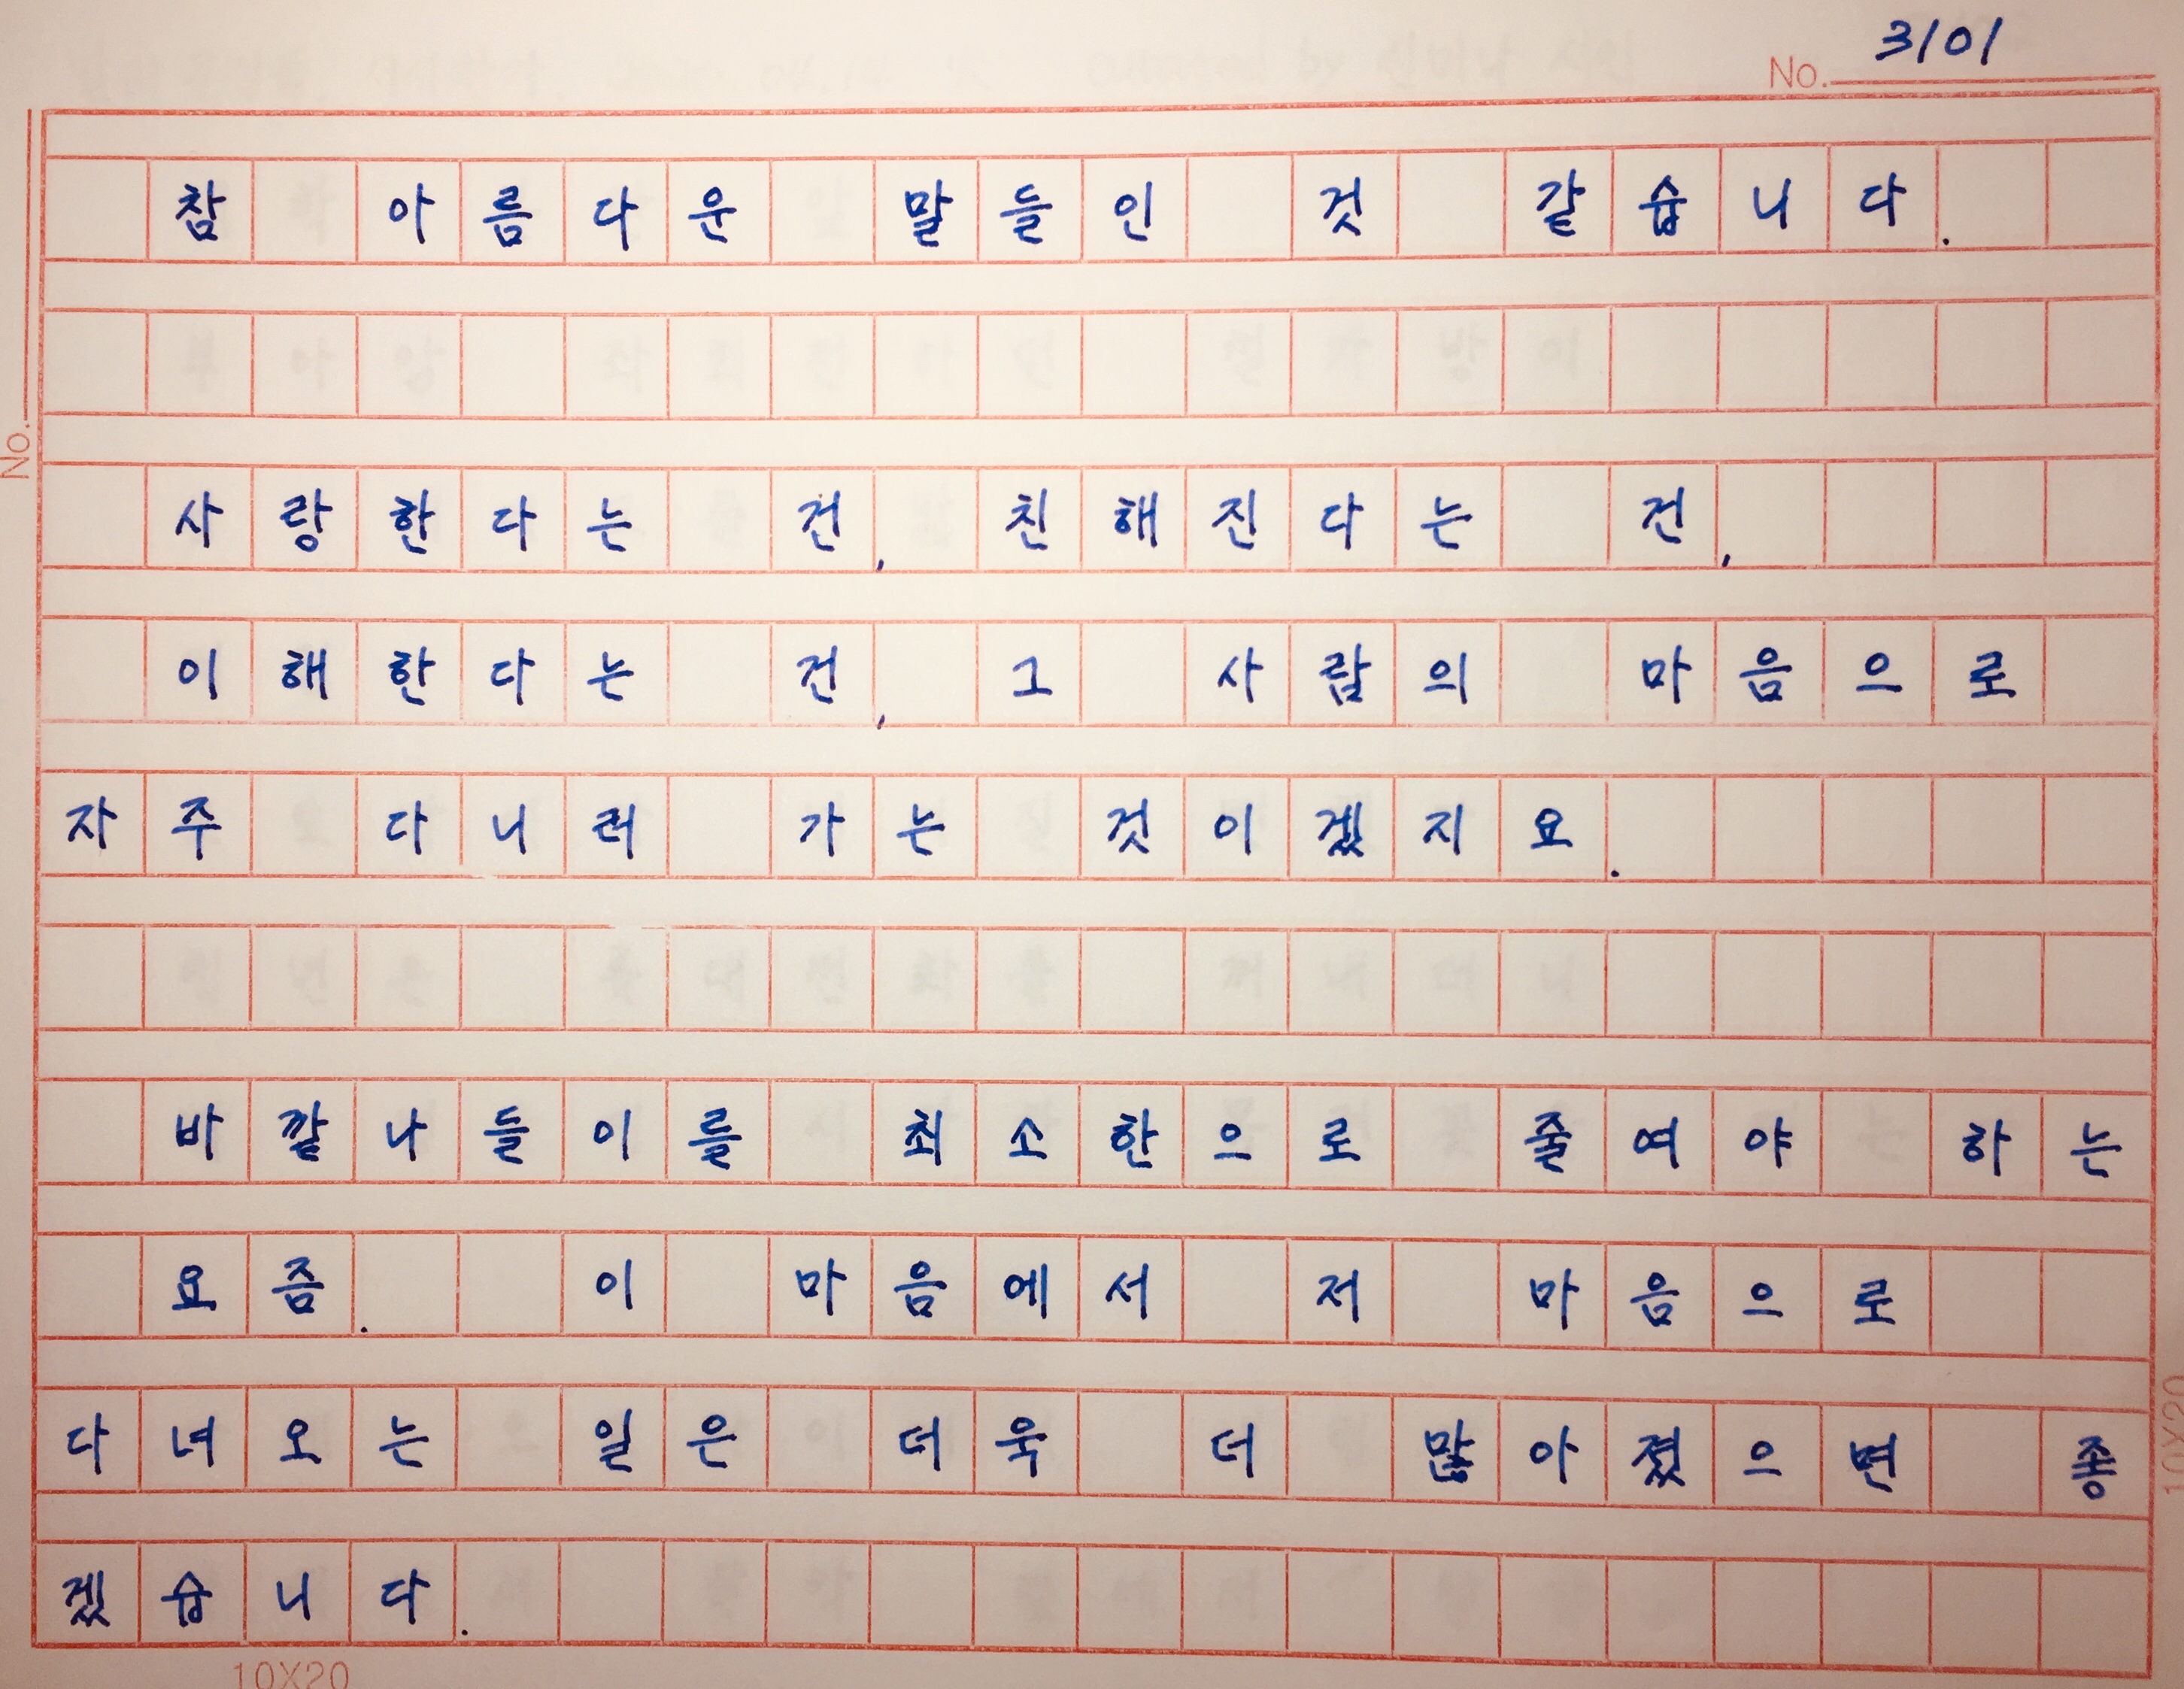 No. 3101
참 아름다운 말들인 것 같습니다.
사랑한다는 건, 친해진다는 건,
이해한다는 건, 그 사람의 마음으로
자주 다니러 가는 것이겠지요.
바깥나들이를 최소한으로 줄여야 하는
요즘. 이 마음에서 저 마음으로
다녀오는 일은 더욱 더 많아졌으면 좋
겠습니다.
No.
10X20
10X20